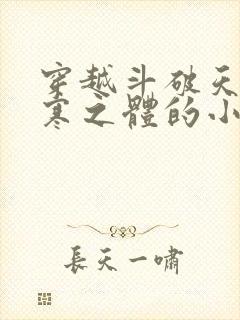 穿越斗破天
寒之體的小
長天一嘯